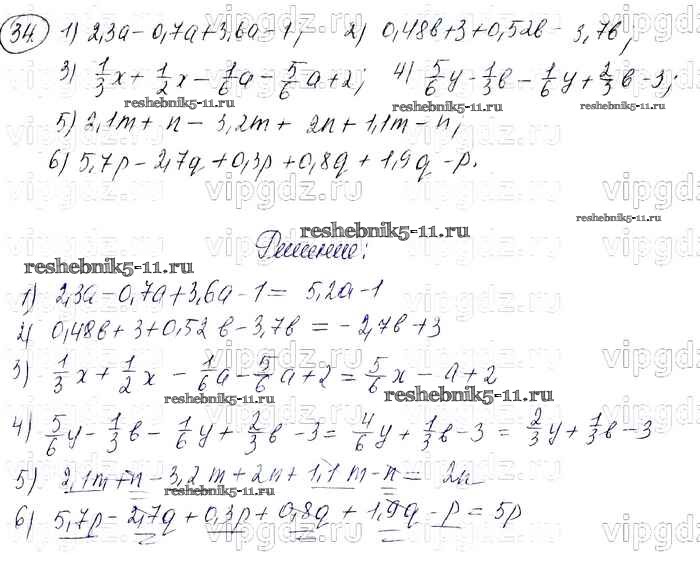 34. 1) 2,3a - 0,7a + 3,6a - 1; 2) 0,48в + 3 + 0,52в - 3,7в;
3) 1/3 x + 1/2 x - 1/6 a - 5/6 a + 2; 4) 5/6 y - 1/3 в - 1/6 y + 2/3 в - 3;
reshebnik5-11.ru reshebnik5-11.ru
5) 2,1m + n - 3,2m + 2n + 1,1m - n;
6) 5,7p - 2,7q + 0,3p + 0,8q + 1,9q - p.
reshebnik5-11.ru
reshebnik5-11.ru
Решение:
reshebnik5-11.ru
1) 2,3a - 0,7a + 3,6a - 1 = 5,2a - 1
2) 0,48в + 3 + 0,52в - 3,7в = - 2,7в + 3
3) 1/3 x + 1/2 x - 1/6 a - 5/6 a + 2 = 5/6 x - a + 2
reshebnik5-11.ru reshebnik5-11.ru
4) 5/6 y - 1/3 в - 1/6 y + 2/3 в - 3 = 4/6 y + 1/3 в - 3 = 2/3 y + 1/3 в - 3
5) 2,1m + n - 3,2m + 2n + 1,1m - n = 2n
reshebnik5-11.ru
6) 5,7p - 2,7q + 0,3p + 0,8q + 1,9q - p = 5p
vipgdz.ru